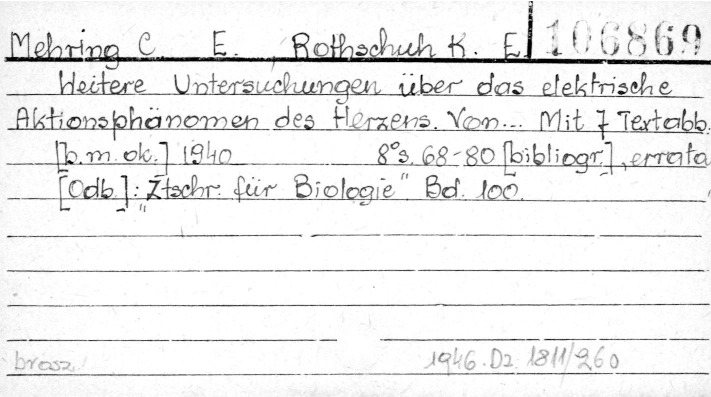 Mehring C. E., Rothschuh K. E. 106869
Weitere Untersuchungen über das elektrische
Aktionsphänomen des Herzens. Von... Mit 7 Textabb.
[b.m.ok.] 1940 8° s. 68-80 [bibliogr.], errata
[Odb.]: "Ztschr. für Biologie" Bd. 100.
brosz. 1946.Dz. 1811/260